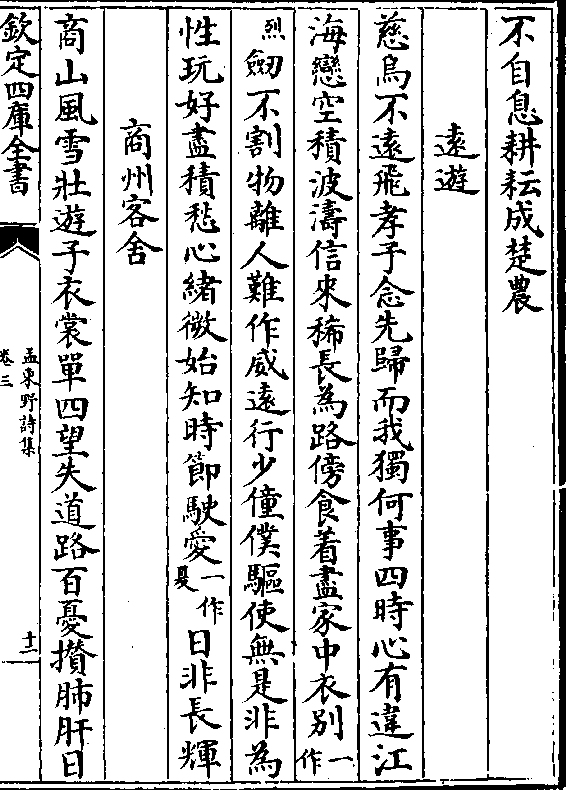 不自息耕耘成楚農
遠遊
慈烏不遠飛孝子念先歸而我獨何事四時心有違江
海戀空積波濤信來稀長為路傍食着盡家中衣別一作
烈劒不割物離人難作威遠行少僮僕驅使無是非為
性玩好盡積愁心緒微始知時節駛愛一作夏日非長輝
商州客舍
商山風雪壯遊子衣裳單四望失道路百憂攢肺肝日
欽定四庫全書
孟東野詩集
卷三
十二